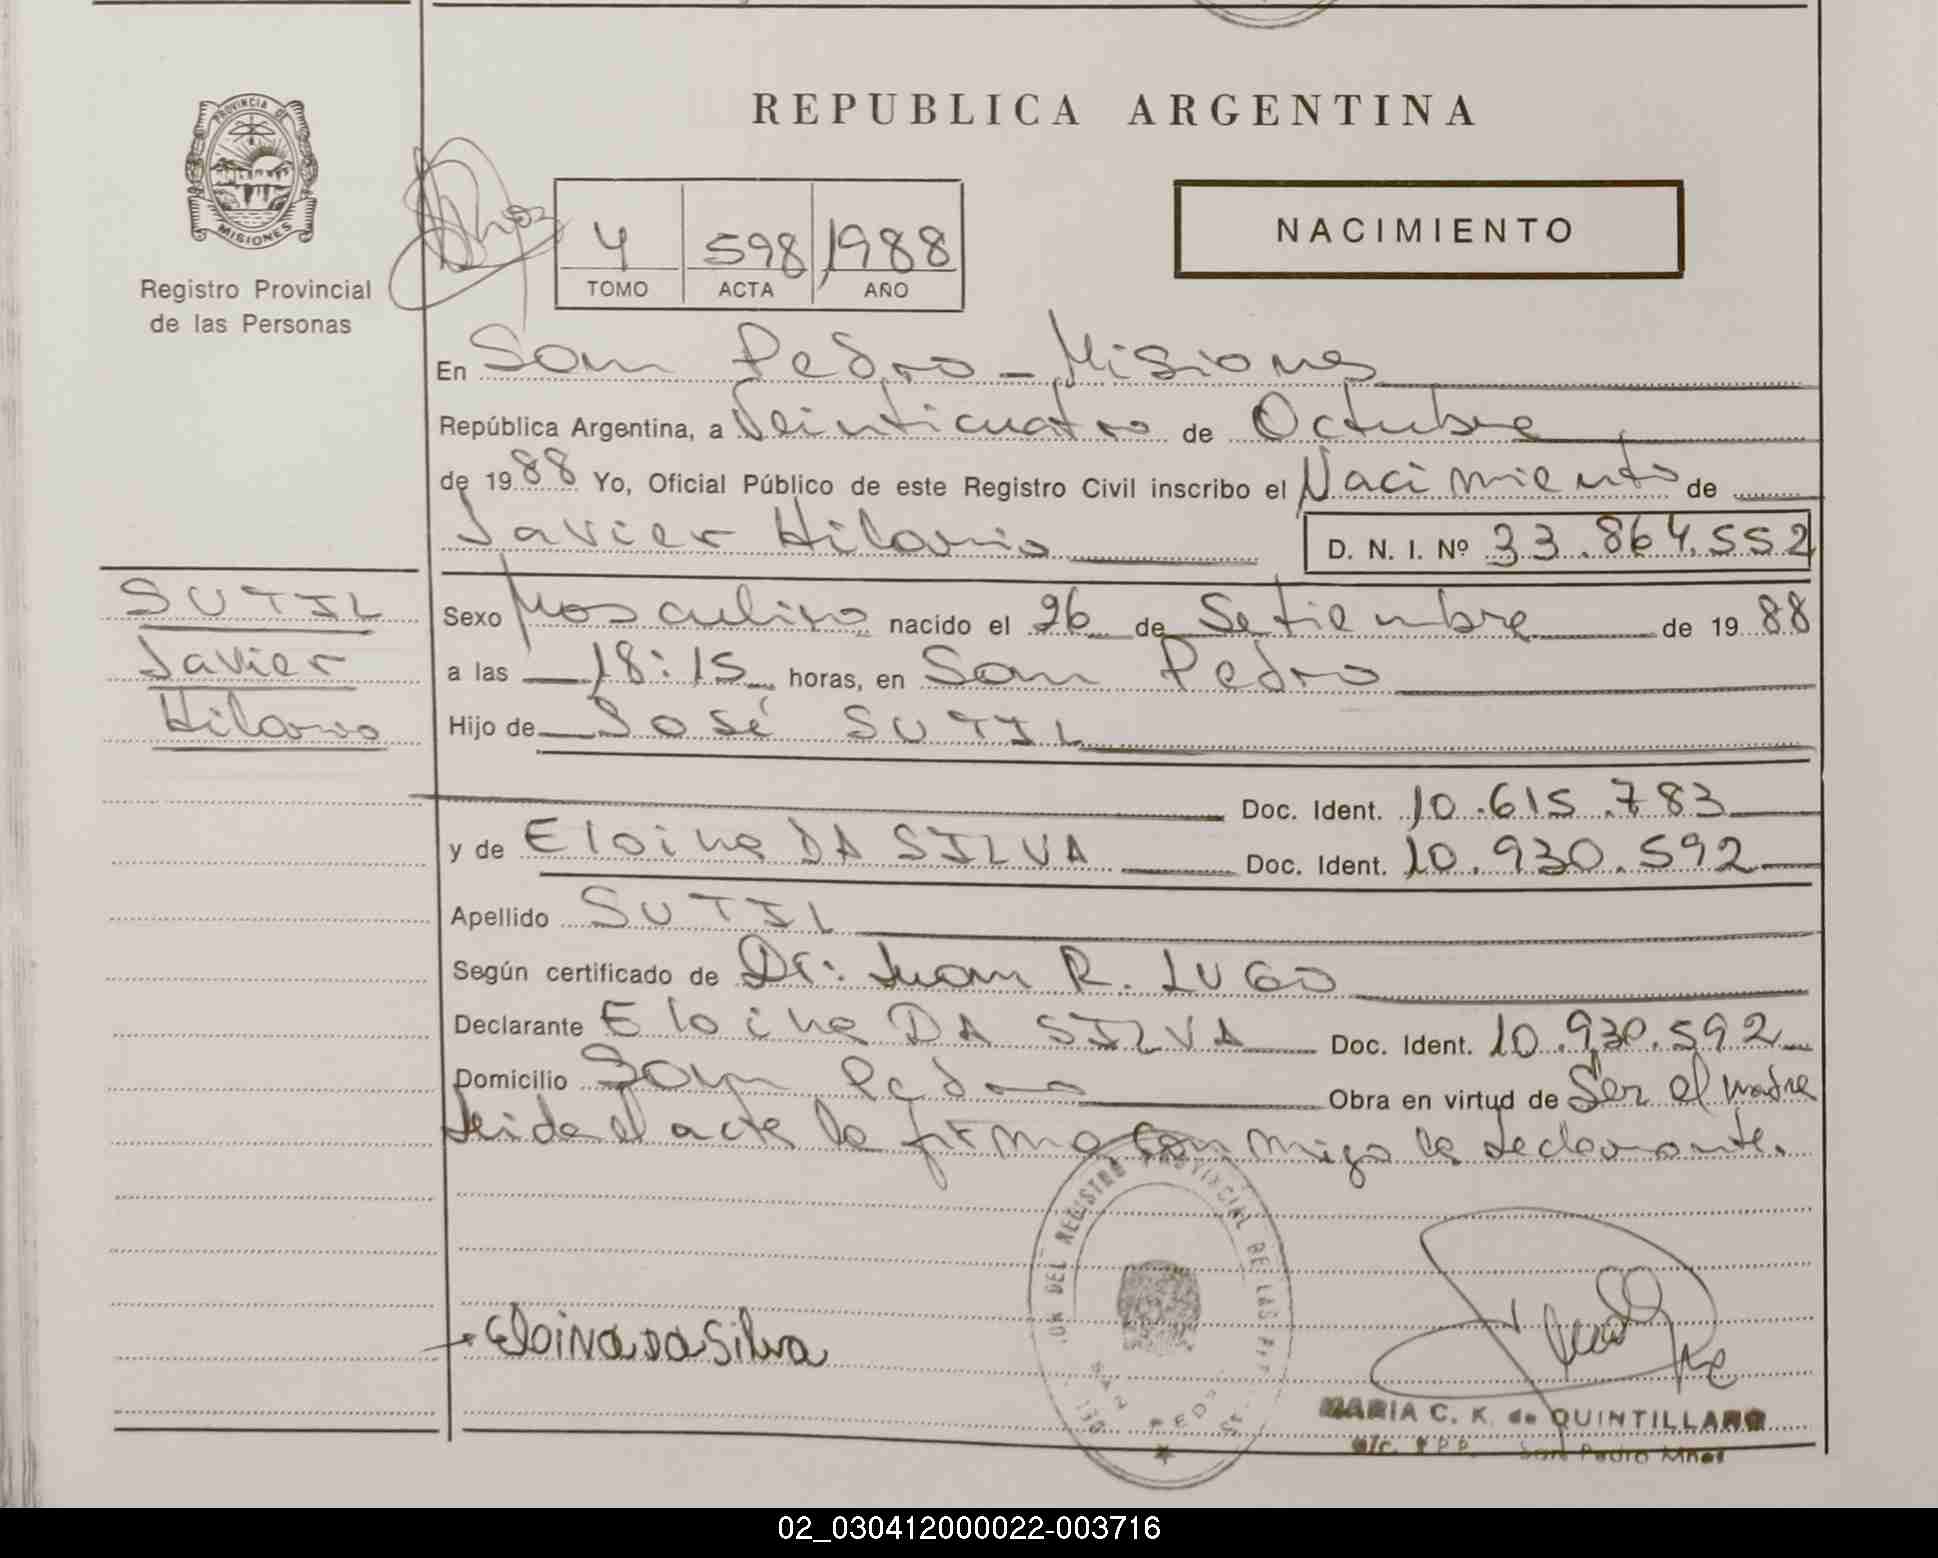 REPUBLICA ARGENTINA
PROVINCIA DE
MISIONES
Registro Provincial
de las Personas
4 598 1988
TOMO ACTA AÑO
NACIMIENTO
En San Pedro - Misiones
República Argentina, a Veinticuatro de Octubre
de 1988 Yo, Oficial Público de este Registro Civil inscribo el Nacimiento de
Javier Hilario D. N. I. Nº 33.864.552
SUTIL
Javier
Hilario
Sexo Masculino nacido el 26 de Setiembre de 1988
a las 18:15 horas, en San Pedro
Hijo de José SUTIL
Doc. Ident. 10.615.783
y de Eloina DA SILVA Doc. Ident. 10.930.592
Apellido SUTIL
Según certificado de Dr: Juan R. LUGO
Declarante Eloina DA SILVA Doc. Ident. 10.930.592
Domicilio San Pedro Obra en virtud de Ser el madre
Leida el acta la firma conmigo la declarante.
DEL REGISTRO PROVINCIAL DE LAS
SAN PEDRO
Eloina Da Silva
MARIA C. K. de QUINTILLANO
San Pedro Mnes
02_030412000022-003716